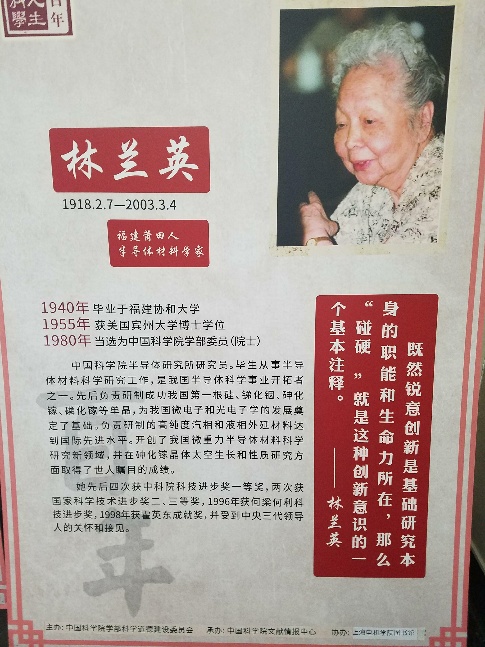 百年
人生
科學
林兰英
1918.2.7—2003.3.4
福建莆田人
半导体材料学家
1940年 毕业于福建协和大学
1955年 获美国宾州大学博士学位
1980年 当选为中国科学院学部委员(院士)
中国科学院半导体研究所研究员。毕生从事半导
体材料科学研究工作,是我国半导体科学事业开拓者
之一。先后负责研制成功我国第一根硅、锑化铟、砷化
镓、磷化镓等单晶,为我国微电子和光电子学的发展奠
定了基础,负责研制的高纯度汽相和液相外延材料达
到国际先进水平。开创了我国微重力半导体材料科学
研究新领域,并在砷化镓晶体太空生长和性质研究方
面取得了世人瞩目的成绩。
她先后四次获中科院科技进步奖一等奖,两次获
国家科学技术进步奖二、三等奖,1996年获何梁何利科
技进步奖,1998年获霍英东成就奖,并受到中央三代领导
人的关怀和接见。
既然锐意创新是基础研究本
身的职能和生命力所在,那么
“碰硬”就是这种创新意识的一
个基本注释。——林兰英
年
主办:中国科学院学部科学道德建设委员会 承办:中国科学院文献情报中心 协办:上海电机学院图书馆